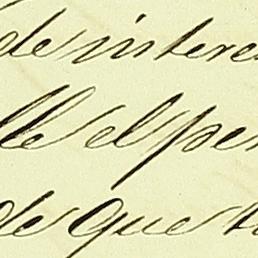 de intere
lle el per
de que tu